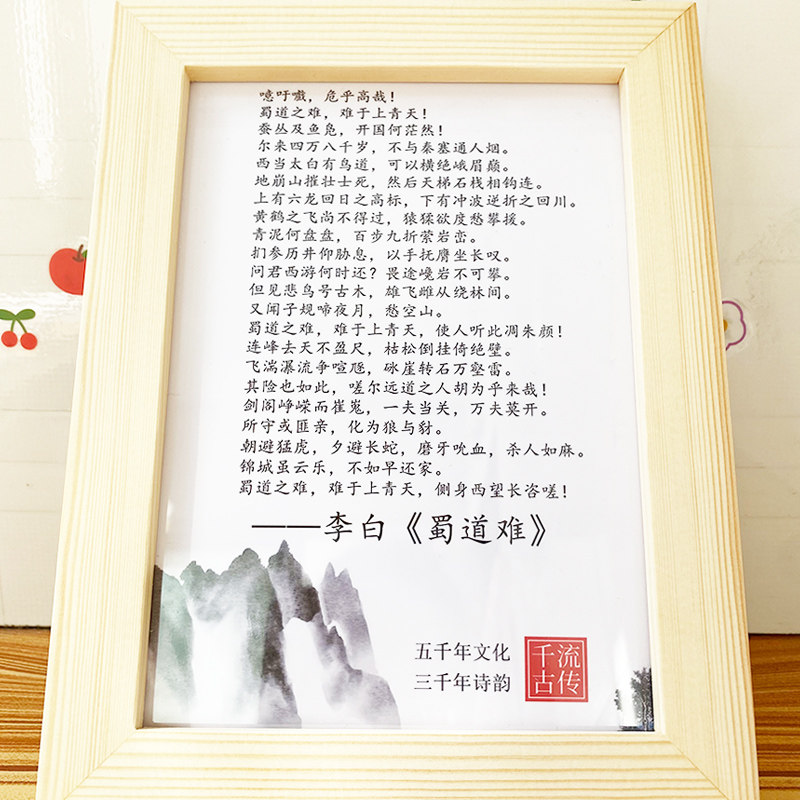 噫吁戲，危乎高哉！
蜀道之难，难于上青天！
蚕丛及鱼凫，开国何茫然！
尔来四万八千岁，不与秦塞通人烟。
西当太白有鸟道，可以横绝峨眉巅。
地崩山摧壮士死，然后天梯石栈相钩连。
上有六龙回日之高标，下有冲波逆折之回川。
黄鹤之飞尚不得过，猿猱欲度愁攀援。
青泥何盘盘，百步九折萦岩峦。
扪参历井仰胁息，以手抚膺坐长叹。
问君西游何时还？畏途巉岩不可攀。
但见悲鸟号古木，雄飞雌从绕林间。
又闻子规啼夜月，愁空山。
蜀道之难，难于上青天，使人听此凋朱颜！
连峰去天不盈尺，枯松倒挂倚绝壁。
飞湍瀑流争喧豗，砯崖转石万壑雷。
其险也如此，嗟尔远道之人胡为乎来哉！
剑阁峥嵘而崔嵬，一夫当关，万夫莫开。
所守或匪亲，化为狼与豺。
朝避猛虎，夕避长蛇，磨牙吮血，杀人如麻。
锦城虽云乐，不如早还家。
蜀道之难，难于上青天，侧身西望长咨嗟！
——李白《蜀道难》
五千年文化
三千年诗韵
千流
古传